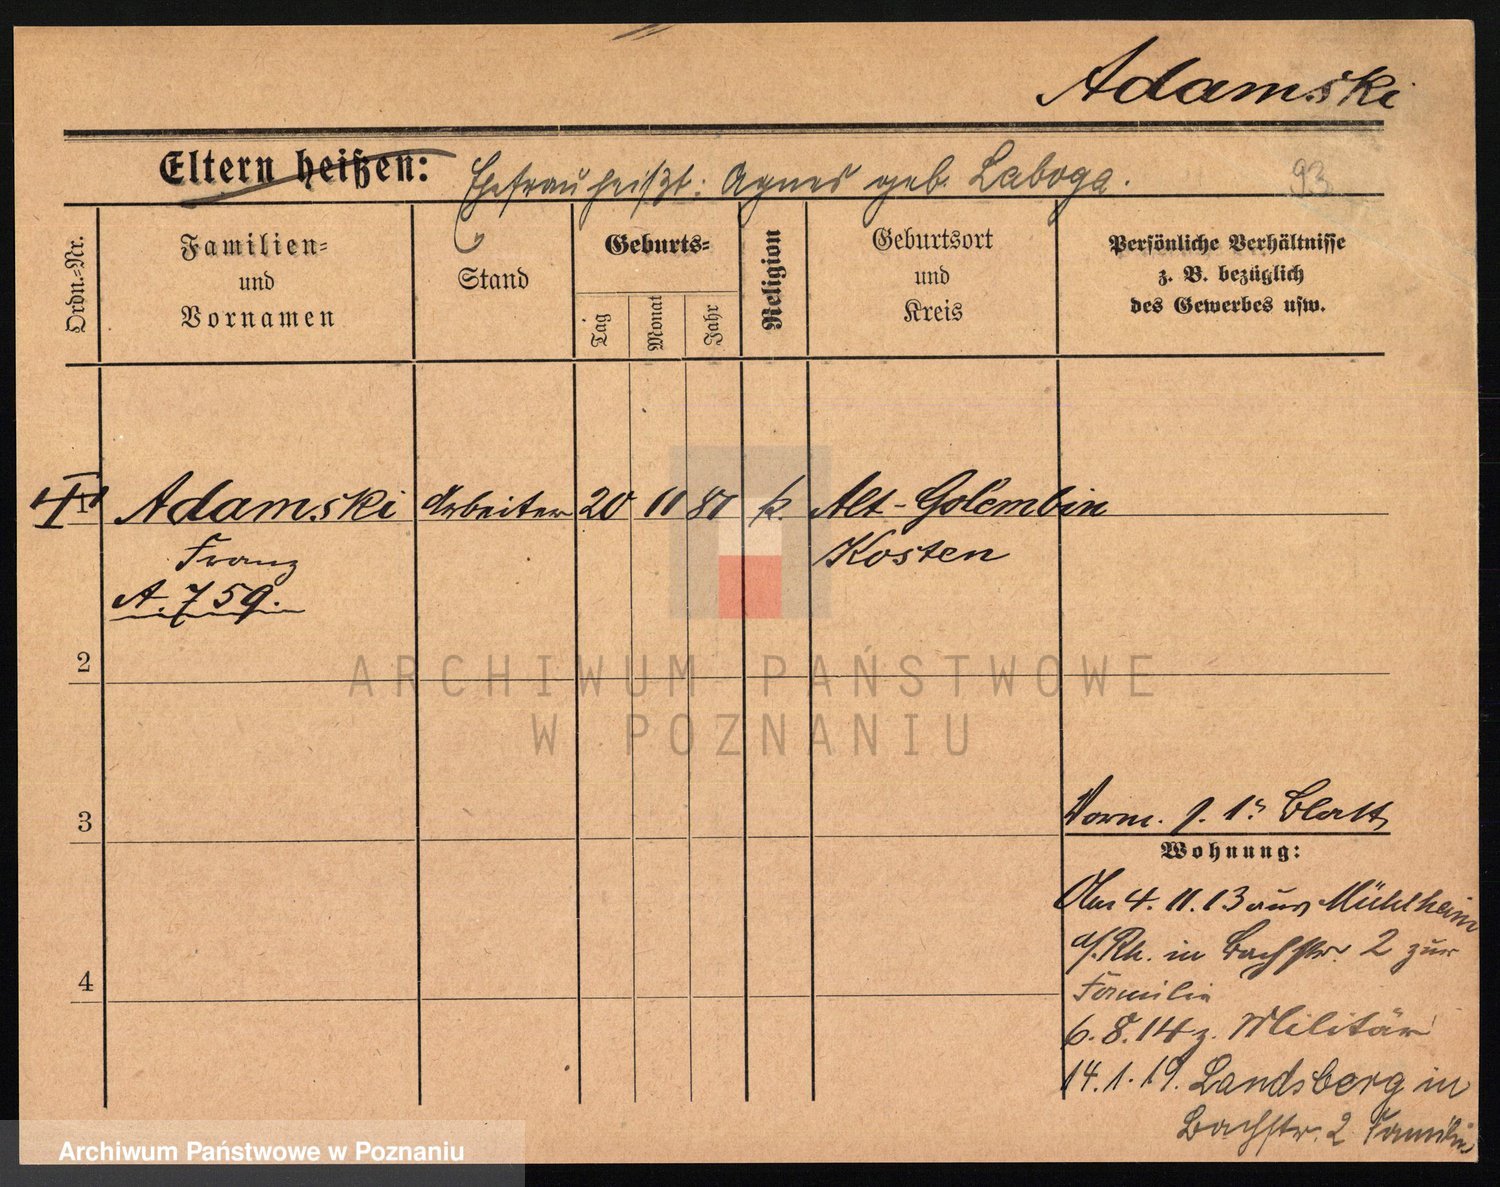 Adamski
Eltern heißen: Ehefrau heißt: Agnes geb. Laboga.
93
Ordn.-Nr.
Familien-
und
Vornamen
Stand
Geburts-
Tag
Monat
Jahr
Religion
Geburtsort
und
Kreis
Persönliche Verhältnisse
z. B. bezüglich
des Gewerbes usw.
1 Adamski Arbeiter 20 11 81 k. Alt-Golembin
Franz Kosten
A. 759.
2
ARCHIWUM PAŃSTWOWE
W POZNANIU
3
Vorm. 1s Blatt
Wohnung:
4. 11. 13 aus Mühlheim
a/Rh. in Bachstr. 2 zur
Familie
4
6. 8. 14 z. Militär
14. 1. 19. Landsberg in
Bachstr. 2 Familie
Archiwum Państwowe w Poznaniu